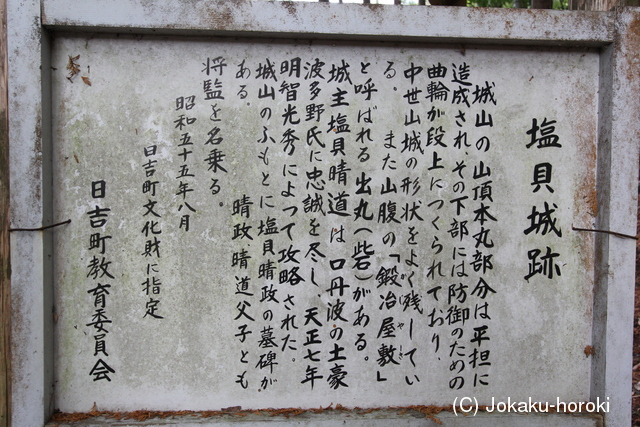 塩貝城跡
城山の山頂本丸部分は平担に
造成され、その下部には防御のための
曲輪が段上につくられており、
中世山城の形状をよく残してい
る。また山腹の「鍛冶屋敷」
と呼ばれる出丸(砦)がある。
城主塩貝晴道は口丹波の土豪
波多野氏に忠誠を尽し、天正七年
明智光秀によって攻略された。
城山のふもとに塩貝晴政の墓碑が
ある。 晴政晴道父子とも
将監を名乗る。
昭和五十五年八月
日吉町文化財に指定
日吉町教育委員会
(C) Jokaku-horoki